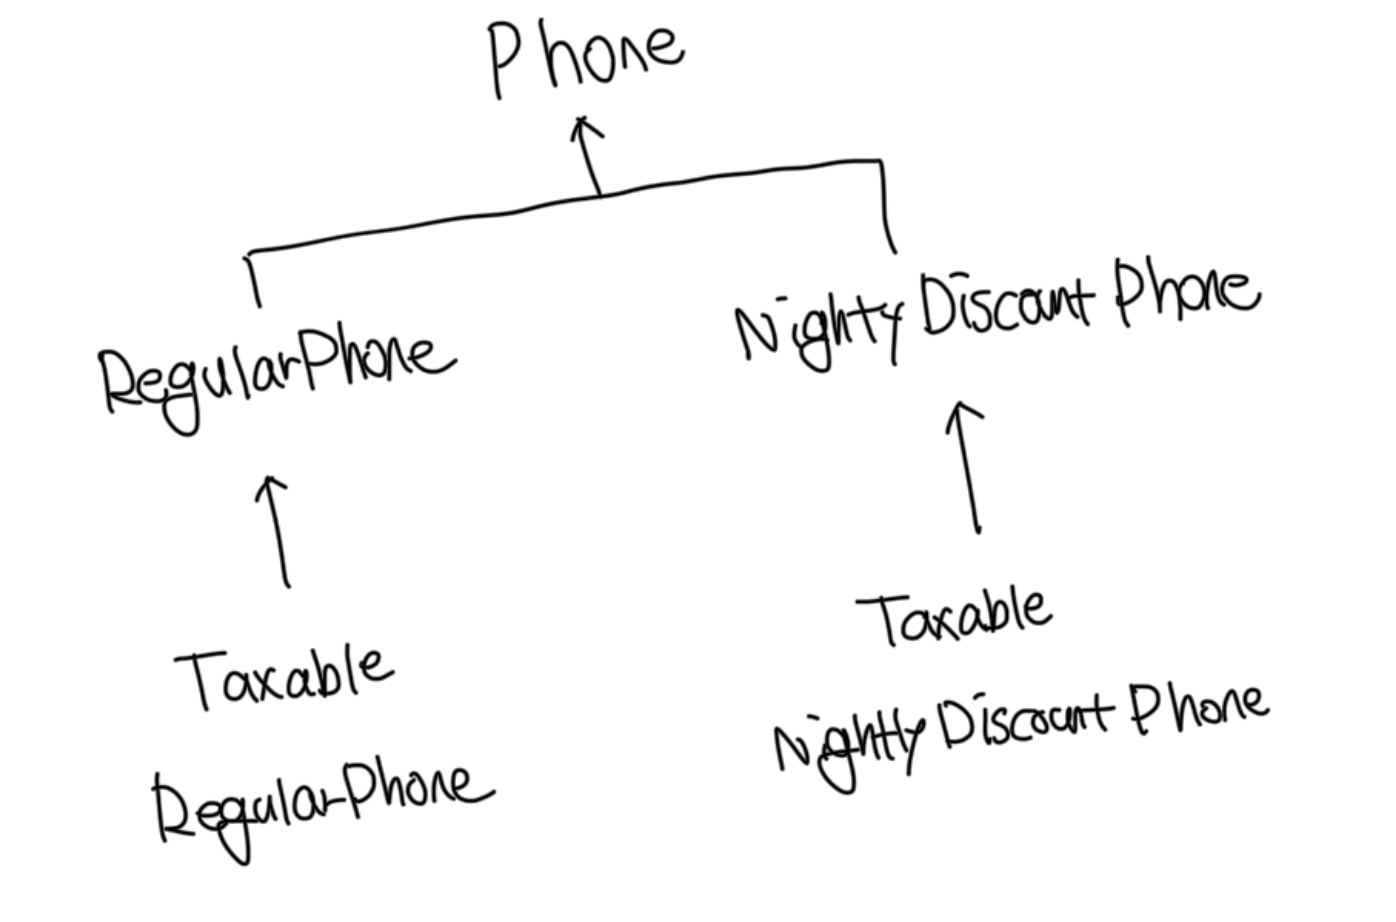 Phone
RegularPhone
Nighty Discount Phone
Taxable
RegularPhone
Taxable
Nightly Discount Phone